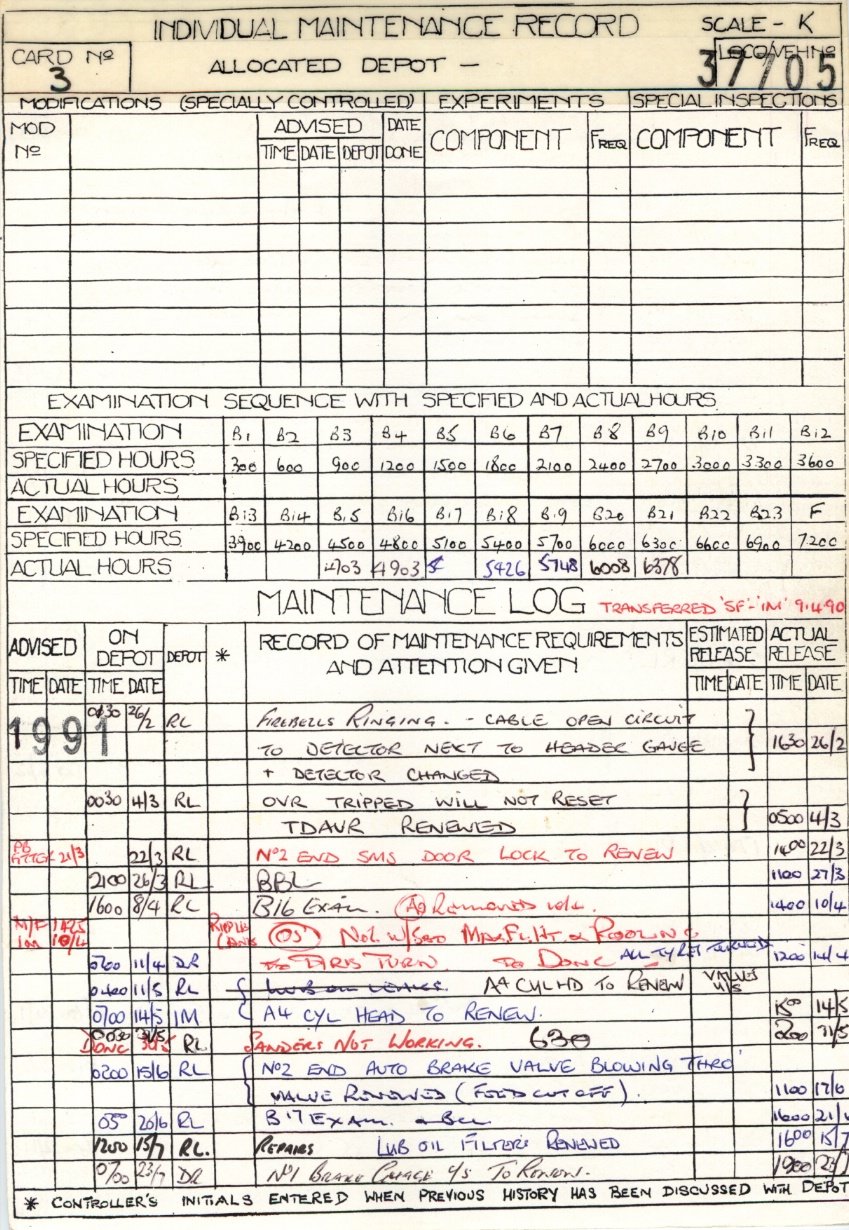 INDIVIDUAL MAINTENANCE RECORD SCALE - K
CARD Nº 3 ALLOCATED DEPOT - LOCO/VEH Nº 37705
MODIFICATIONS (SPECIALLY CONTROLLED) EXPERIMENTS SPECIAL INSPECTIONS
MOD Nº ADVISED DATE DONE COMPONENT FREQ COMPONENT FREQ
TIME DATE DEPOT
EXAMINATION SEQUENCE WITH SPECIFIED AND ACTUAL HOURS
EXAMINATION B1 B2 B3 B4 B5 B6 B7 B8 B9 B10 B11 B12
SPECIFIED HOURS 300 600 900 1200 1500 1800 2100 2400 2700 3000 3300 3600
ACTUAL HOURS
EXAMINATION B13 B14 B15 B16 B17 B18 B19 B20 B21 B22 B23 F
SPECIFIED HOURS 3900 4200 4500 4800 5100 5400 5700 6000 6300 6600 6900 7200
ACTUAL HOURS 4703 4903 5426 5748 6008 6378
MAINTENANCE LOG TRANSFERRED 'SF'-'IM' 9.4.90
ADVISED ON DEPOT DEPOT * RECORD OF MAINTENANCE REQUIREMENTS AND ATTENTION GIVEN ESTIMATED RELEASE ACTUAL RELEASE
TIME DATE TIME DATE TIME DATE TIME DATE
1991 0130 26/2 RL FIREBELLS RINGING. - CABLE OPEN CIRCUIT
TO DETECTOR NEXT TO HEADER GAUGE 1630 26/2
+ DETECTOR CHANGED
0030 4/3 RL OVR TRIPPED WILL NOT RESET
TDAVR RENEWED 0500 4/3
21/3 22/3 RL Nº2 END SMS DOOR LOCK TO RENEW 1400 22/3
2100 26/3 RL BBL 1100 27/3
1600 8/4 RL B16 EXAM. 1400 10/4
M/F 1425
IM 10/4 Nº2 W/SET
0700 11/4 DR TURN TO DONC ALL TYRES TURNED 1200 14/4
0400 11/5 RL LUB OIL LEAKS. A4 CYL HD TO RENEW VALVES U/S
0700 14/5 IM A4 CYL HEAD TO RENEW. 14/5
DONC RL SANDERS NOT WORKING. 630 0200 31/5
0200 15/6 RL Nº2 END AUTO BRAKE VALVE BLOWING THRO'
VALVE RENEWED (FEED CUT OFF). 1100 17/6
20/6 RL B17 EXAM. 1600
1200 15/7 RL. REPAIRS LUB OIL FILTERS RENEWED 1600 15/7
0700 23/7 DR Nº1 BRAKE GAUGE U/S TO RENEW. 1900
* CONTROLLER'S INITIALS ENTERED WHEN PREVIOUS HISTORY HAS BEEN DISCUSSED WITH DEPOT